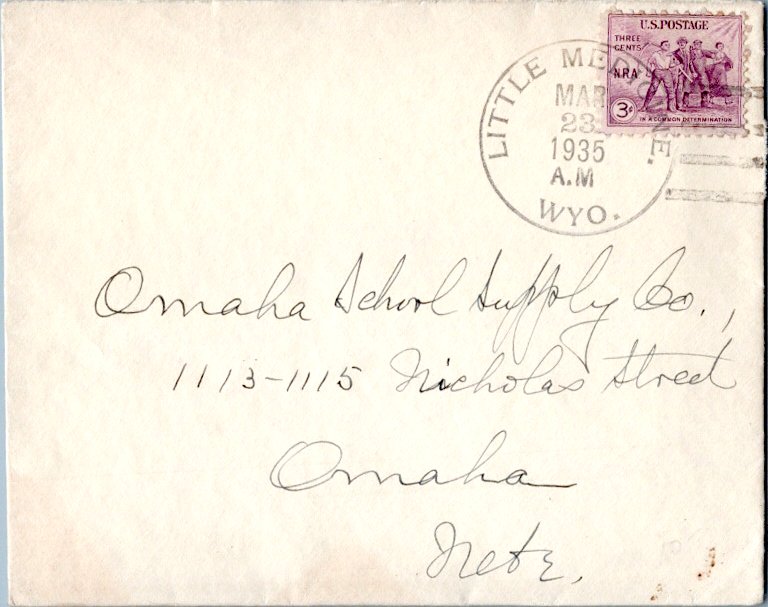 U.S. POSTAGE
THREE
CENTS
N.R.A.
3¢
IN A COMMON DETERMINATION
LITTLE MEDICINE.
MAR
23
1935
A.M
WYO.
Omaha School Supply Co.,
1113-1115 Nicholas Street
Omaha
Nebr.